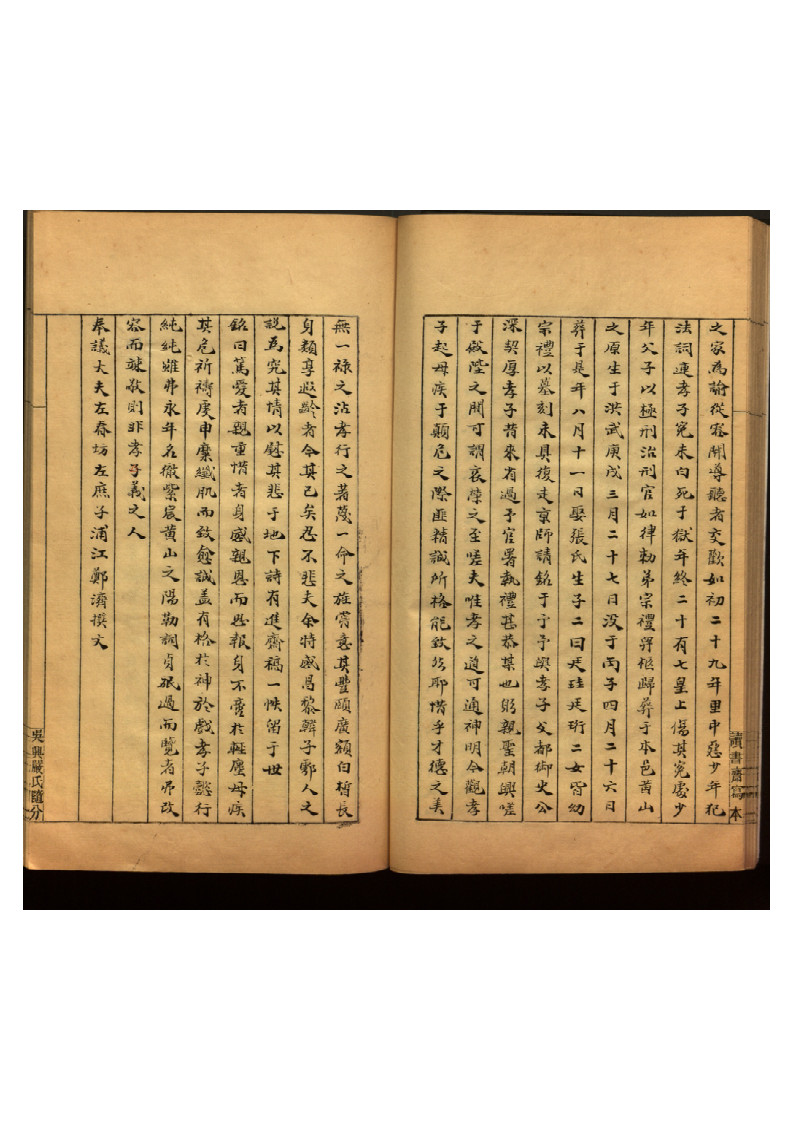 之家為諭從容開導聽者交歡如初二十九年里中惡少年犯
法詞連孝子冤未白死于獄年終二十有七皇上傷其冤處少
年父子以極刑治刑官如律勑弟宗禮舁柩歸葬于本邑黃山
之原生于洪武庚戌三月二十七日没于丙子四月二十六日
葬于是年八月十一日娶張氏生子二曰珽珪珽珩二女皆幼
宗禮以墓刻未具復走京師請銘于予予與孝子父都御史公
深契厚孝子昔來省過予官署執禮甚恭某也躬親聖朝興嗟
于殿陛之間可謂哀榮之至嗟夫唯孝之道可通神明今觀孝
子起母疾于顛危之際匪精誠所格能致玆耶惜乎才德之美
無一祿之沾孝行之著蔑一命之旌嘗意其豐頤廣額白晳長
身類享遐齡者今其已矣忍不悲夫余特感昌黎韓子鄠人之
說為究其情以慰其悲于地下詩有進齋稿一帙留于世
銘曰篤愛者親重惜者身感親恩而思報身不愛於輕塵母疾
其危祈禱庚申糜纖肌而致愈誠盖有格於神於戲孝子懿行
純純雖弗永年名徹紫宸黃山之陽勒詞貞珉過而覽者吊改
容而竦敬則非孝子義之人
奉議大夫左春坊左庶子浦江鄭濟撰文
讀書齋寫本
吳興嚴氏隨分